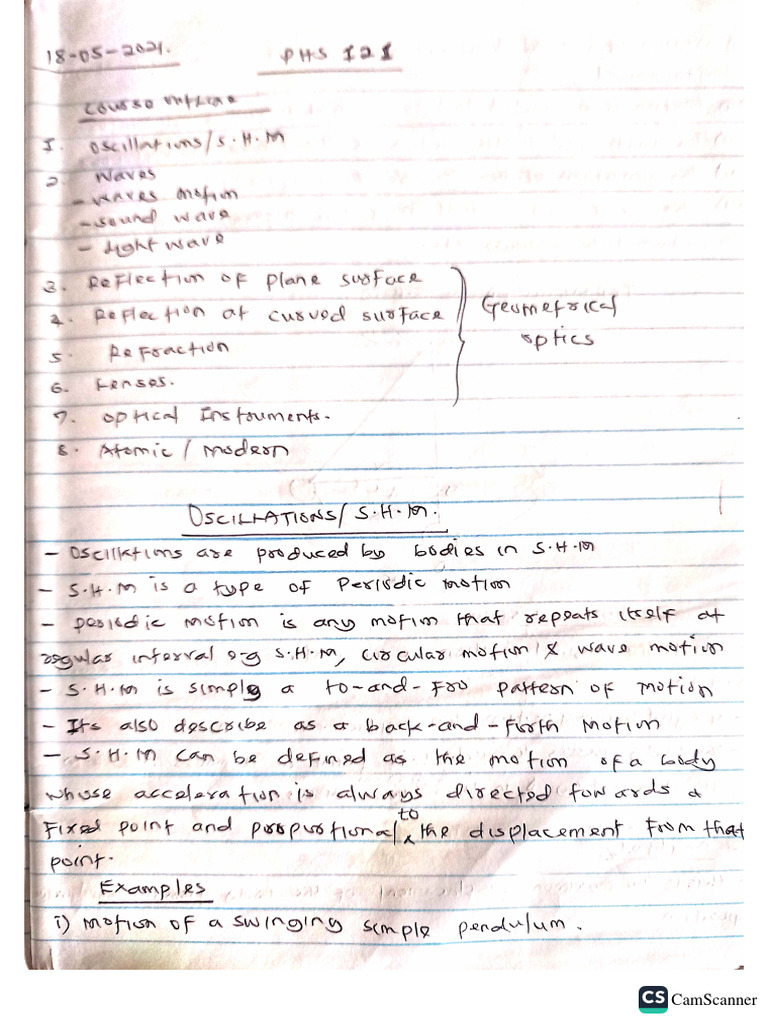 18-05-2021. PHS 121
Course outline
1. Oscillations/S.H.M
2. Waves
- Waves motion
- sound wave
- Light wave
3. Reflection of plane surface
4. Reflection at curved surface
5. Refraction
6. Lenses.
Geometrical
optics
7. Optical Instruments.
8. Atomic / Modern
OSCILLATIONS/ S.H.M.
- Oscillations are produced by bodies in S.H.M
- S.H.M is a type of Periodic motion
- periodic motion is any motion that repeats itself at
regular interval e.g S.H.M, circular motion & wave motion
- S.H.M is simply a to-and-fro pattern of motion
- Its also describe as a back-and-forth motion
- S.H.M can be defined as the motion of a body
whose acceleration is always directed towards a
Fixed point and proportional to the displacement from that
point.
Examples
i) motion of a swinging simple pendulum.
CS CamScanner